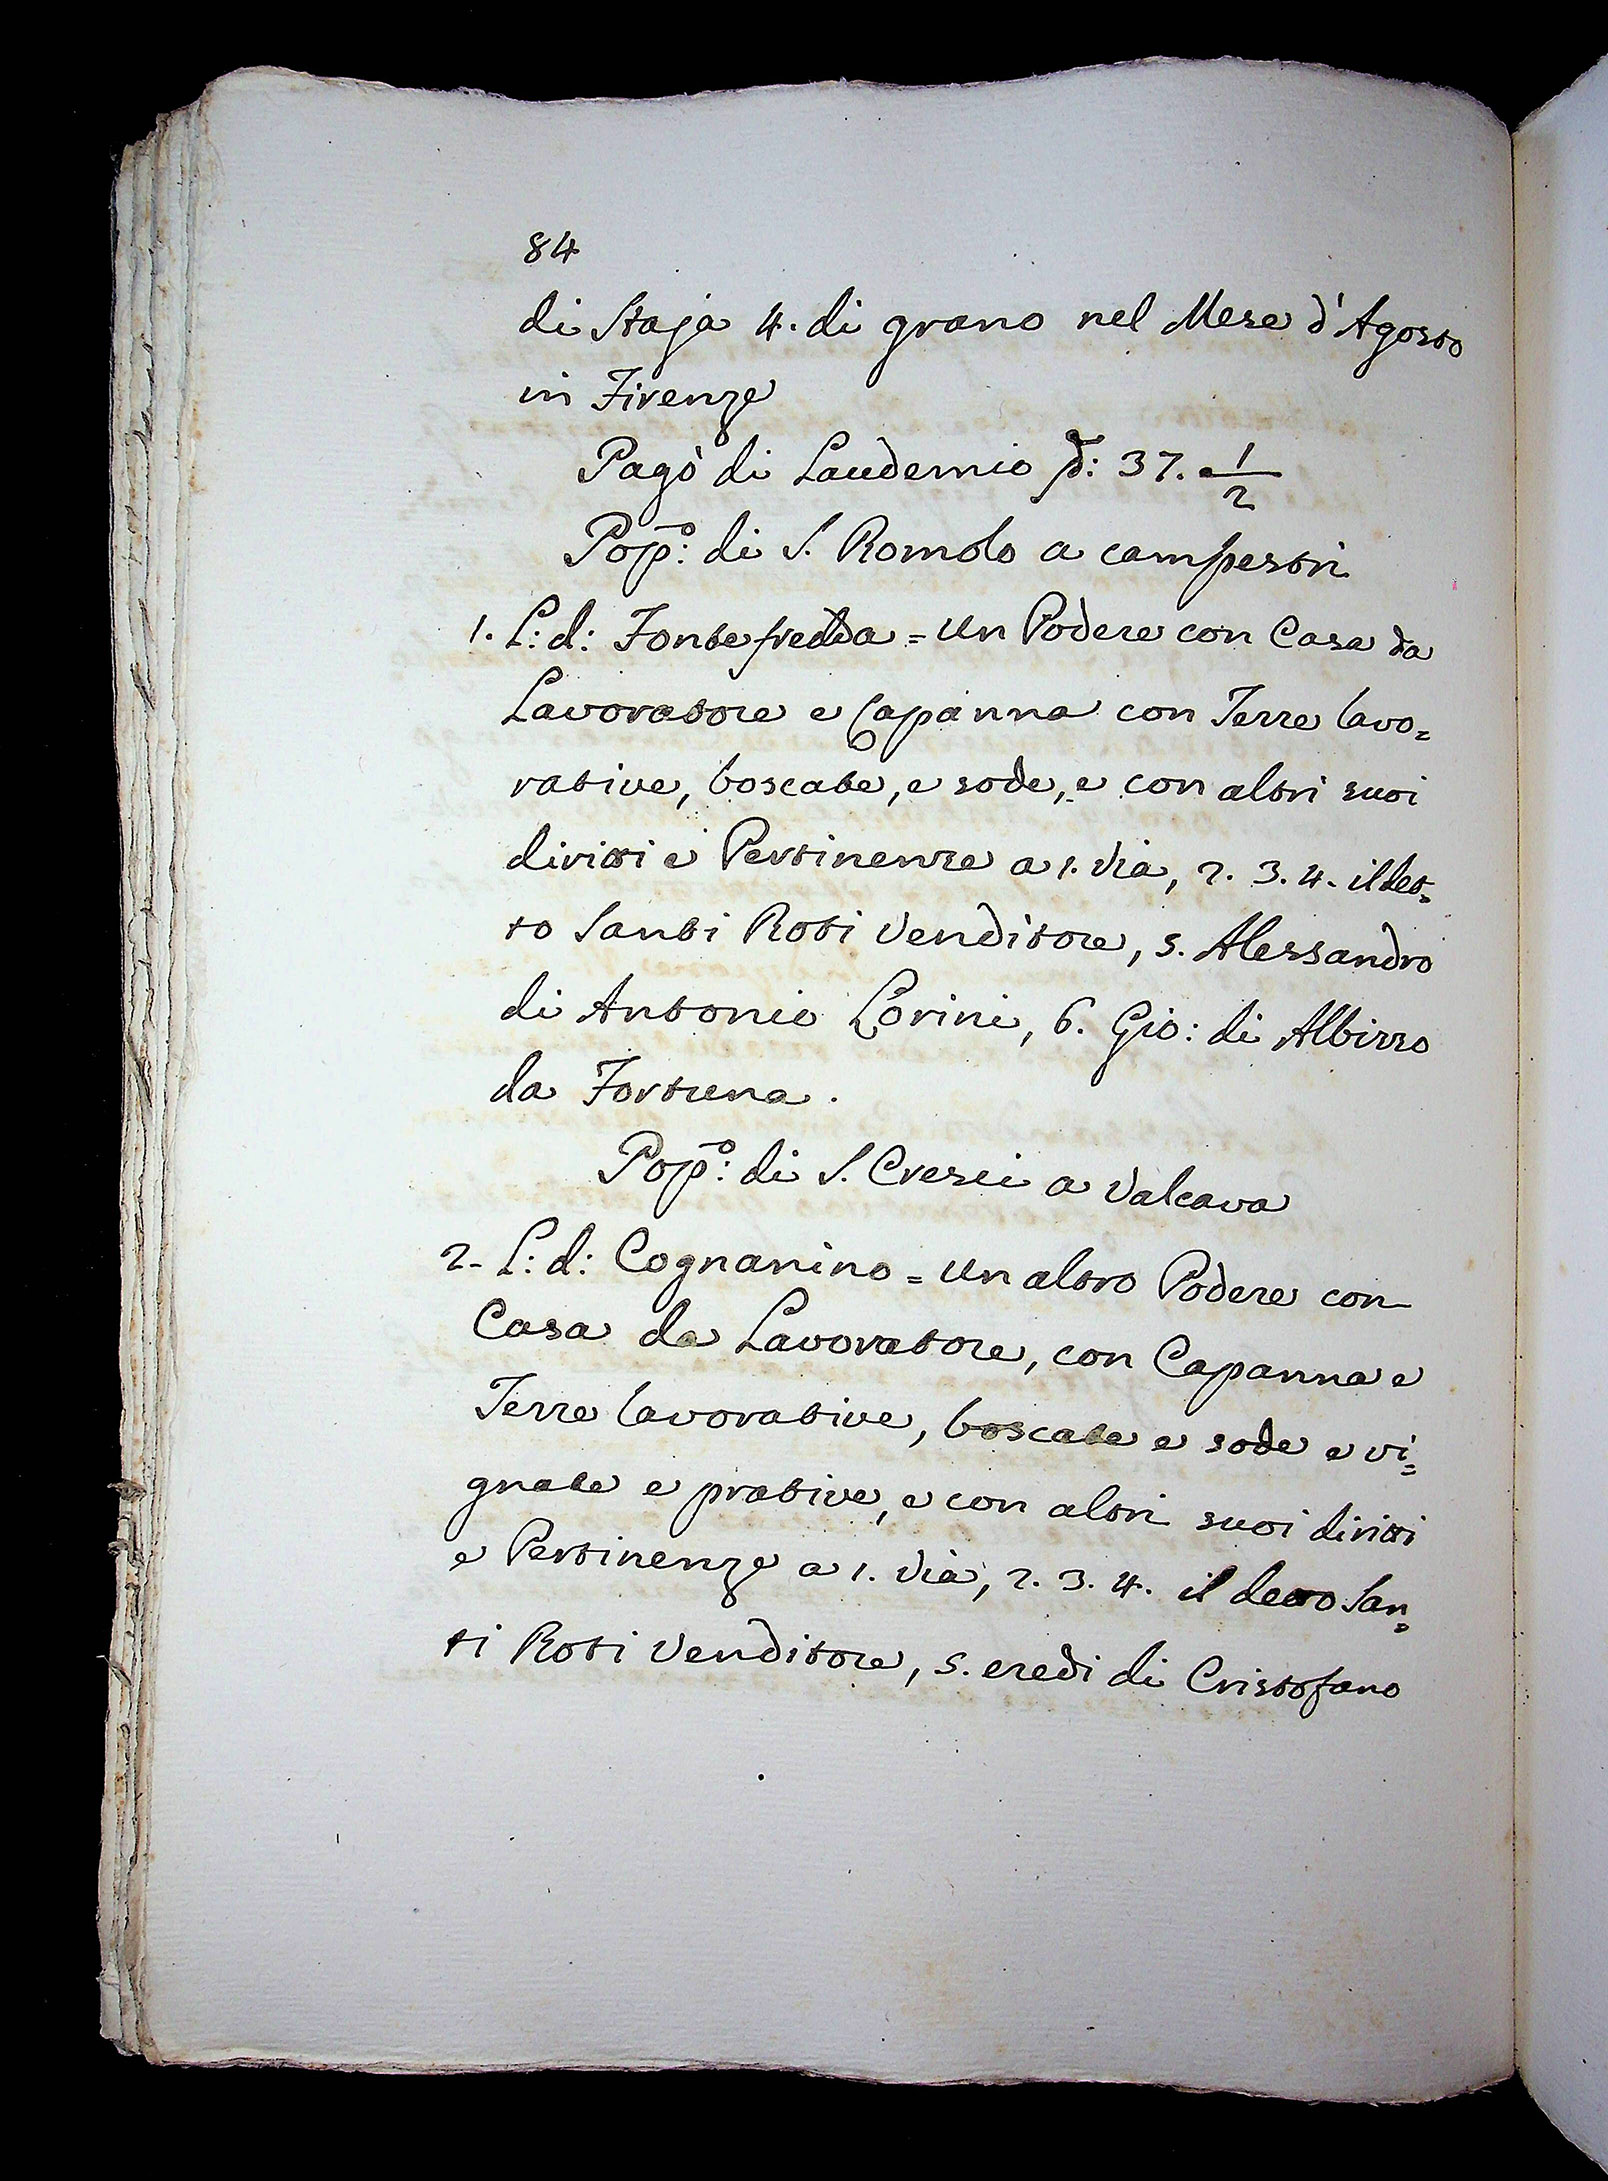 84
di Staja 4. di grano nel Mese d'Agosto
in Firenze
Pagò di Laudemio ∇: 37. 1/2
Pop:º di S. Romolo a campestri
1. L: d: Fontefredda = Un Podere con Casa da
Lavoratore e Capanna con Terre lavo=
rative, boscate, e sode, e con altri suoi
diritti e Pertinenze a 1. Via, 2. 3. 4. il det=
to Santi Roti Venditore, 5. Alessandro
di Antonio Lorini, 6. Gio: di Albizzo
da Fortuna.
Pop:º di S. Cresci a Valcava
2. L: d: Cognanino = Un altro Podere con
Casa da Lavoratore, con Capanna e
Terre lavorative, boscate e sode e vi=
gnate e prative, e con altri suoi diritti
e Pertinenze a 1. Via, 2. 3. 4. il detto San=
ti Roti Venditore, 5. eredi di Cristofano